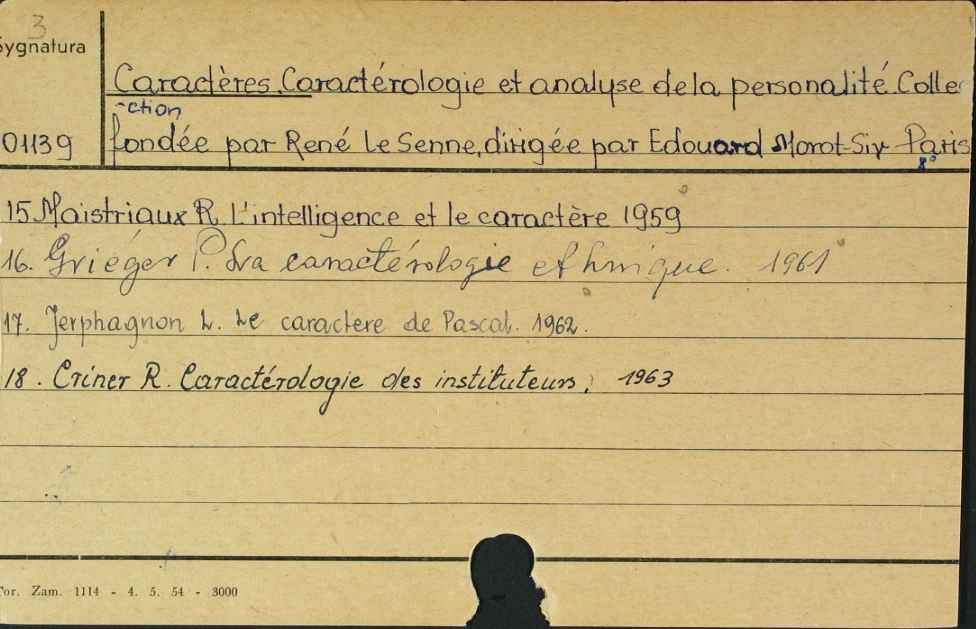 3
Sygnatura
Caractères. Caractérologie et analyse de la personalité. Colle-
-ction
01139 fondée par René Le Senne, dirigée par Edouard Morot-Sir Paris
8°
15 Maistriaux R. L'intelligence et le caractère 1959
16. Griéger P. La caractérologie ethnique. 1961
17. Jerphagnon L. Le caractere de Pascal. 1962.
18. Criner R. Caractérologie des instituteurs, 1963
Tor. Zam. 1114 - 4. 5. 54 - 3000